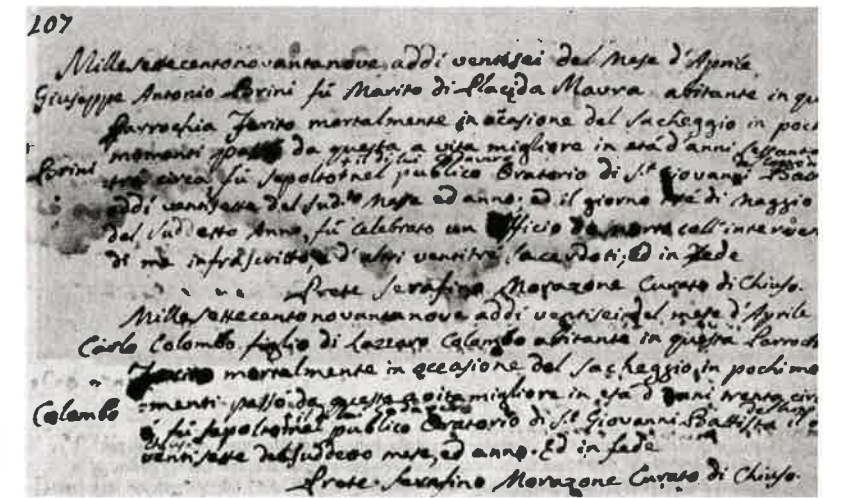 107
Millesettecentonovantanove, addi ventisei del Mese d'Aprile
Giuseppe Antonio Brini fù Marito di Placida Maura abitante in qu
Parrochia Ferito mortalmente in ocasione del Sacheggio in poch
momenti passò da questa a vita migliore in età d'anni sessanta
il di lui Cadavere
Brini
tre circa, fù sepolto nel publico Oratorio di S.t Giovanni Bat
addi ventisette del sud.to Mese ed anno: ed il giorno tré di Maggio
del Suddetto Anno, fù celebrato un Officio da morto coll'interven
di me infrascritto, e d'altri ventitrè Sacerdoti; Ed in Fede
Prete Serafino Morazone Curato di Chiuso.
Millesettecentonovantanove addi ventisei del mese d'Aprile
Carlo Colombo figlio di Lazzaro Colombo abitante in questa Parroch
Ferito mortalmente in occasione del Sacheggio, in pochi mo
Colombo
menti passò da questa a vita migliore in età d'anni trenta circ
il di lui Cadavere
è fù sepolto nel publico Oratorio di S.t Giovanni Battista il
ventisette del suddetto mese, ed anno. Ed in fede
Prete Serafino Morazone Curato di Chiuso.